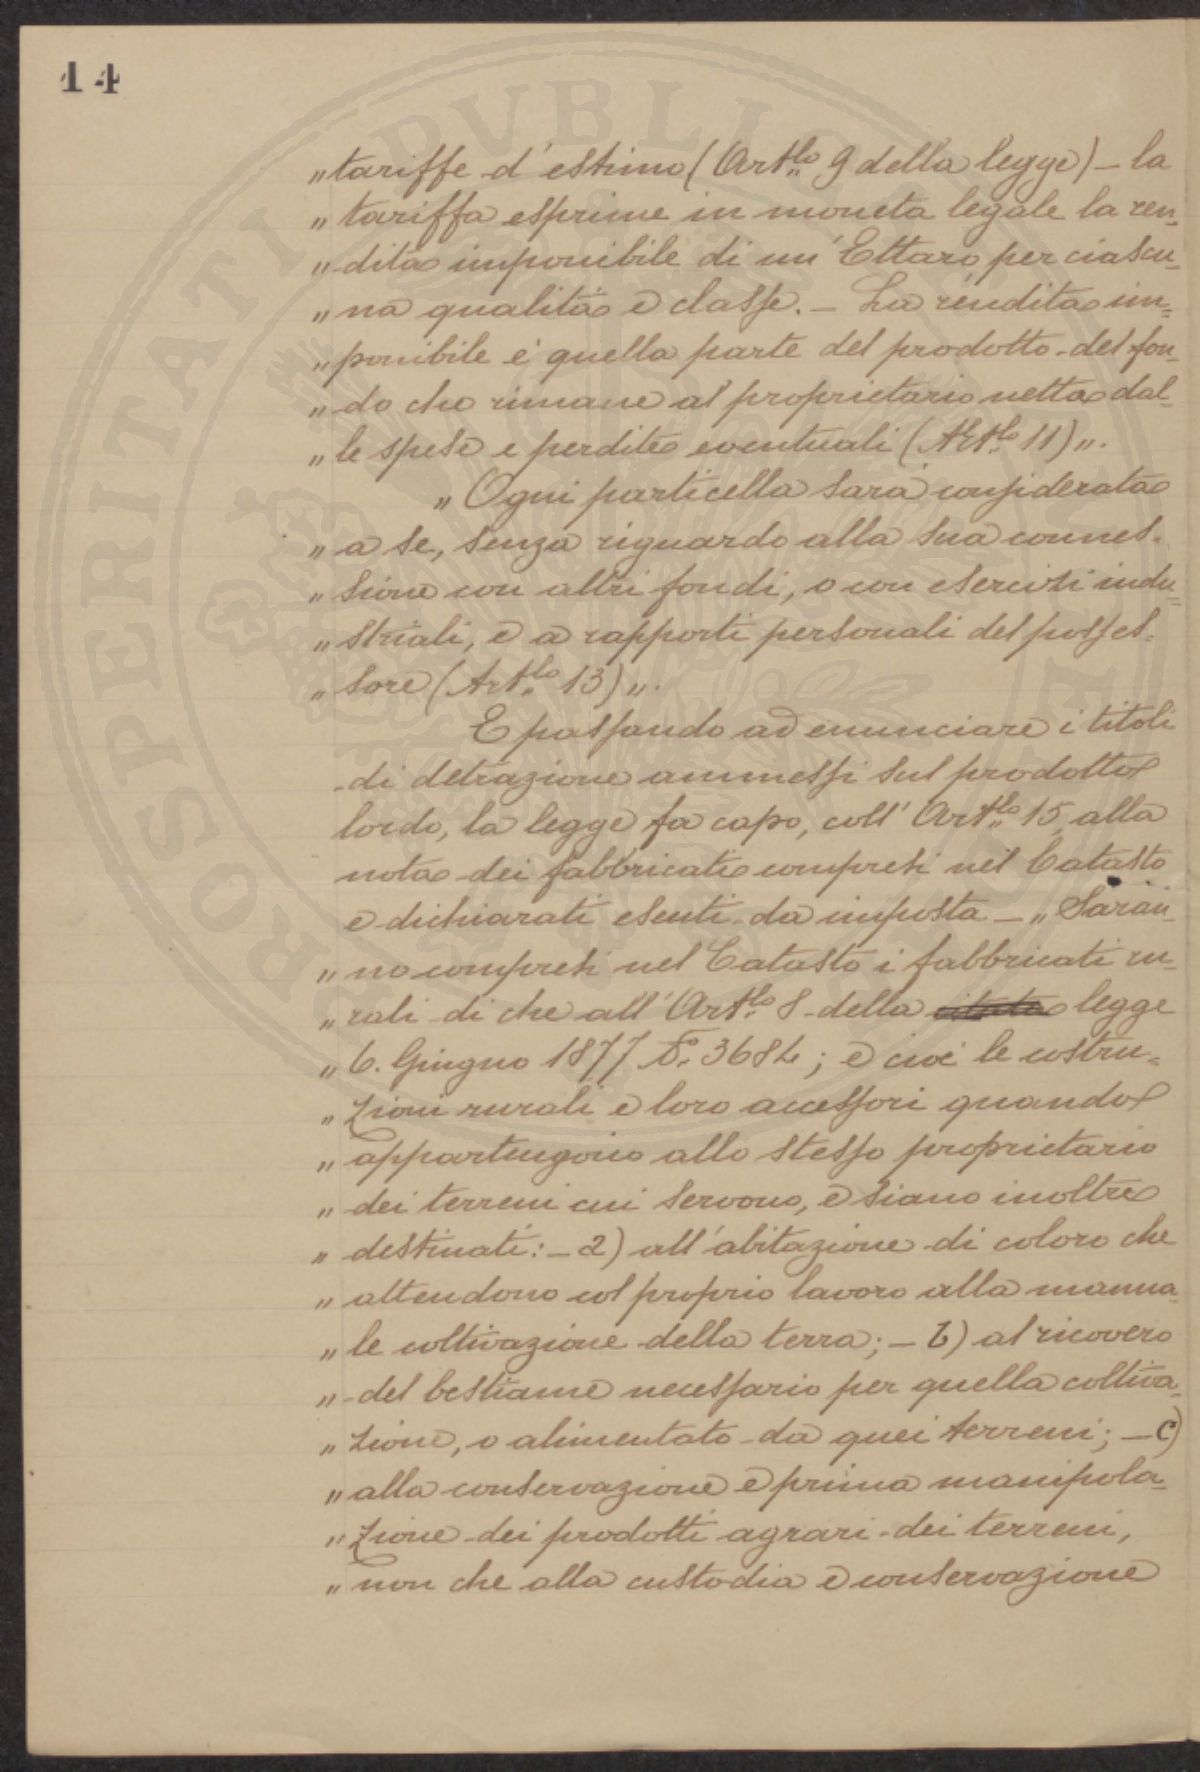 14
„tariffe d'estimo (Art.lo 9 della legge) – la
„tariffa esprime in moneta legale la ren„
„dita imponibile di un'Ettaro per ciascu„
„na qualità e classe. – La rendita im=
„ponibile è quella parte del prodotto del fon„
„do che rimane al proprietario netta dal„
„le spese e perdite eventuali (Art.lo 11)„.
„Ogni particella sarà considerata
„a se, senza riguardo alla sua connes=
„sione con altri fondi, o con esercizi indu=
„striali, e a rapporti personali del posses=
„sore (Art.lo 13)„.
E passando ad enunciare i titoli
di detrazione ammessi sul prodotto
lordo, la legge fa capo, coll'Art.lo 15, alla
nota dei fabbricati compresi nel Catasto
e dichiarati esenti da imposta – „Saran„
„no compresi nel Catasto i fabbricati ru„
„rali di che all'Art.lo 8 della citata legge
„6. Giugno 1877 N.o 3684; e cioè le costru=
„zioni rurali e loro accessori quando
„appartengono allo stesso proprietario
„dei terreni cui servono, e siano inoltre
„destinati: – a) all'abitazione di coloro che
„attendono col proprio lavoro alla manua„
„le coltivazione della terra; – b) al ricovero
„del bestiame necessario per quella coltiva„
„zione, o alimentato da quei terreni; – c)
„alla conservazione e prima manipola„
„zione dei prodotti agrari dei terreni,
„non che alla custodia e conservazione
PROSPERITATI PVBLICAE